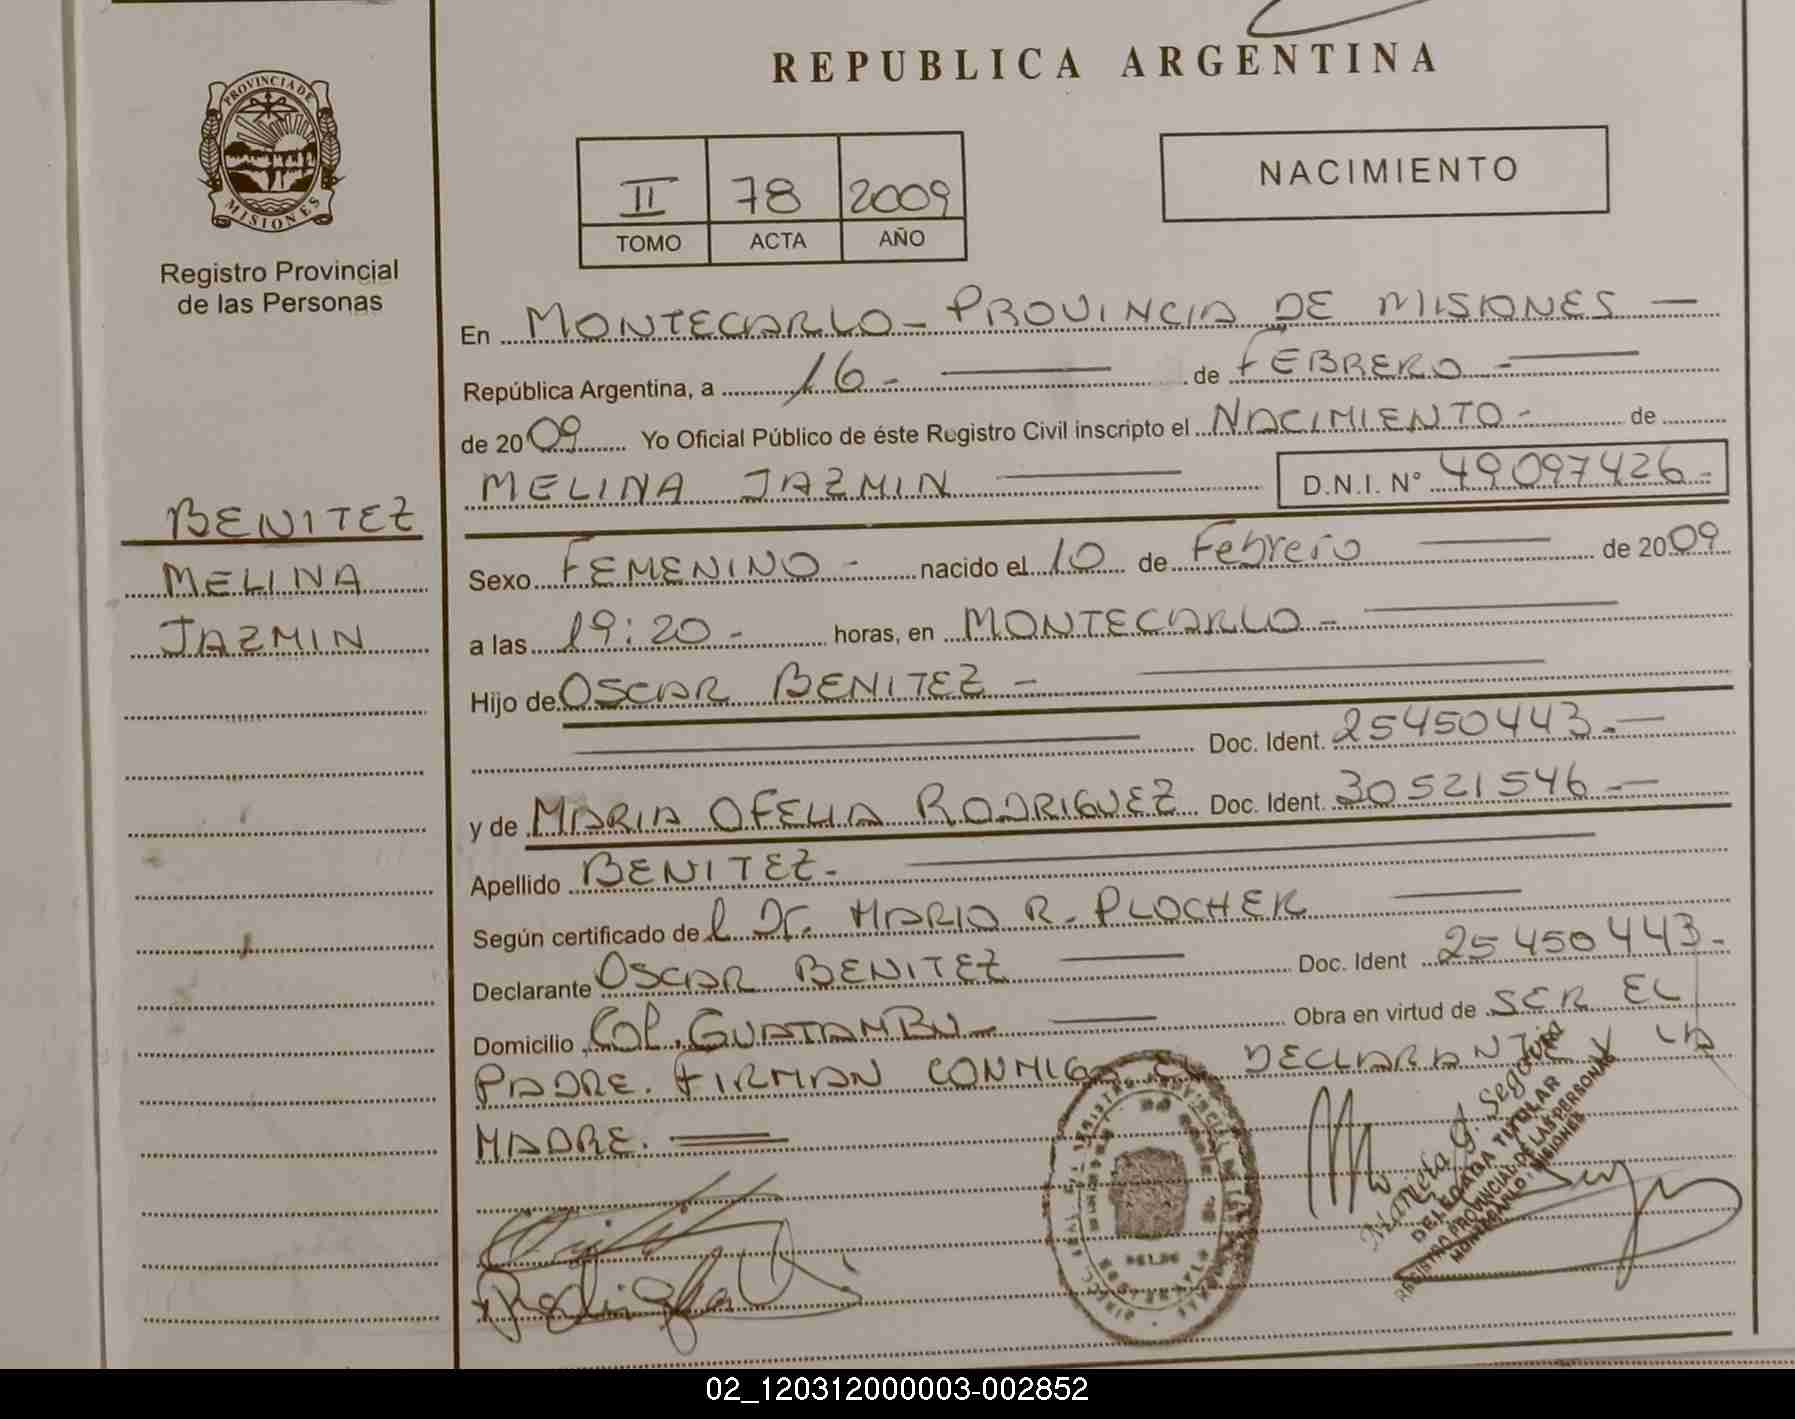 REPUBLICA ARGENTINA
PROVINCIA DE
MISIONES
Registro Provincial
de las Personas
II 78 2009
TOMO ACTA AÑO
NACIMIENTO
En MONTECARLO - PROVINCIA DE MISIONES —
República Argentina, a 16 - — de FEBRERO - —
de 2009 Yo Oficial Público de éste Registro Civil inscripto el NACIMIENTO - de
MELINA JAZMIN — D.N.I. N° 49097426 -
BENITEZ
MELINA
JAZMIN
Sexo FEMENINO - nacido el 10 de Febrero — de 2009
a las 19:20 - horas, en MONTECARLO - —
Hijo de OSCAR BENITEZ - —
— Doc. Ident. 25450443 . —
y de MARIA OFELIA RODRIGUEZ Doc. Ident. 30521546 - —
Apellido BENITEZ - —
Según certificado de l Dr. MARIO R. PLOCHER —
Declarante OSCAR BENITEZ — Doc. Ident 25450443 -
Domicilio Col. GUATAMBU - — Obra en virtud de SER EL
PADRE. FIRMAN CONMIGO EL DECLARANTE Y LA
MADRE. =
Marieta G. Segovia
DELEGADA TITULAR
REGISTRO PROVINCIAL DE LAS PERSONAS
MONTECARLO - MISIONES
02_120312000003-002852